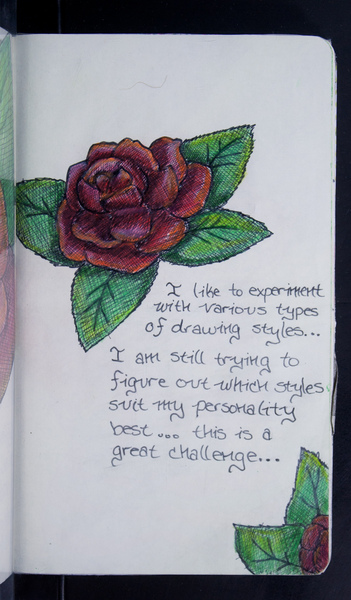 I like to experiment
with various types
of drawing styles...
I am still trying to
figure out which styles
suit my personality
best... this is a
great challenge...